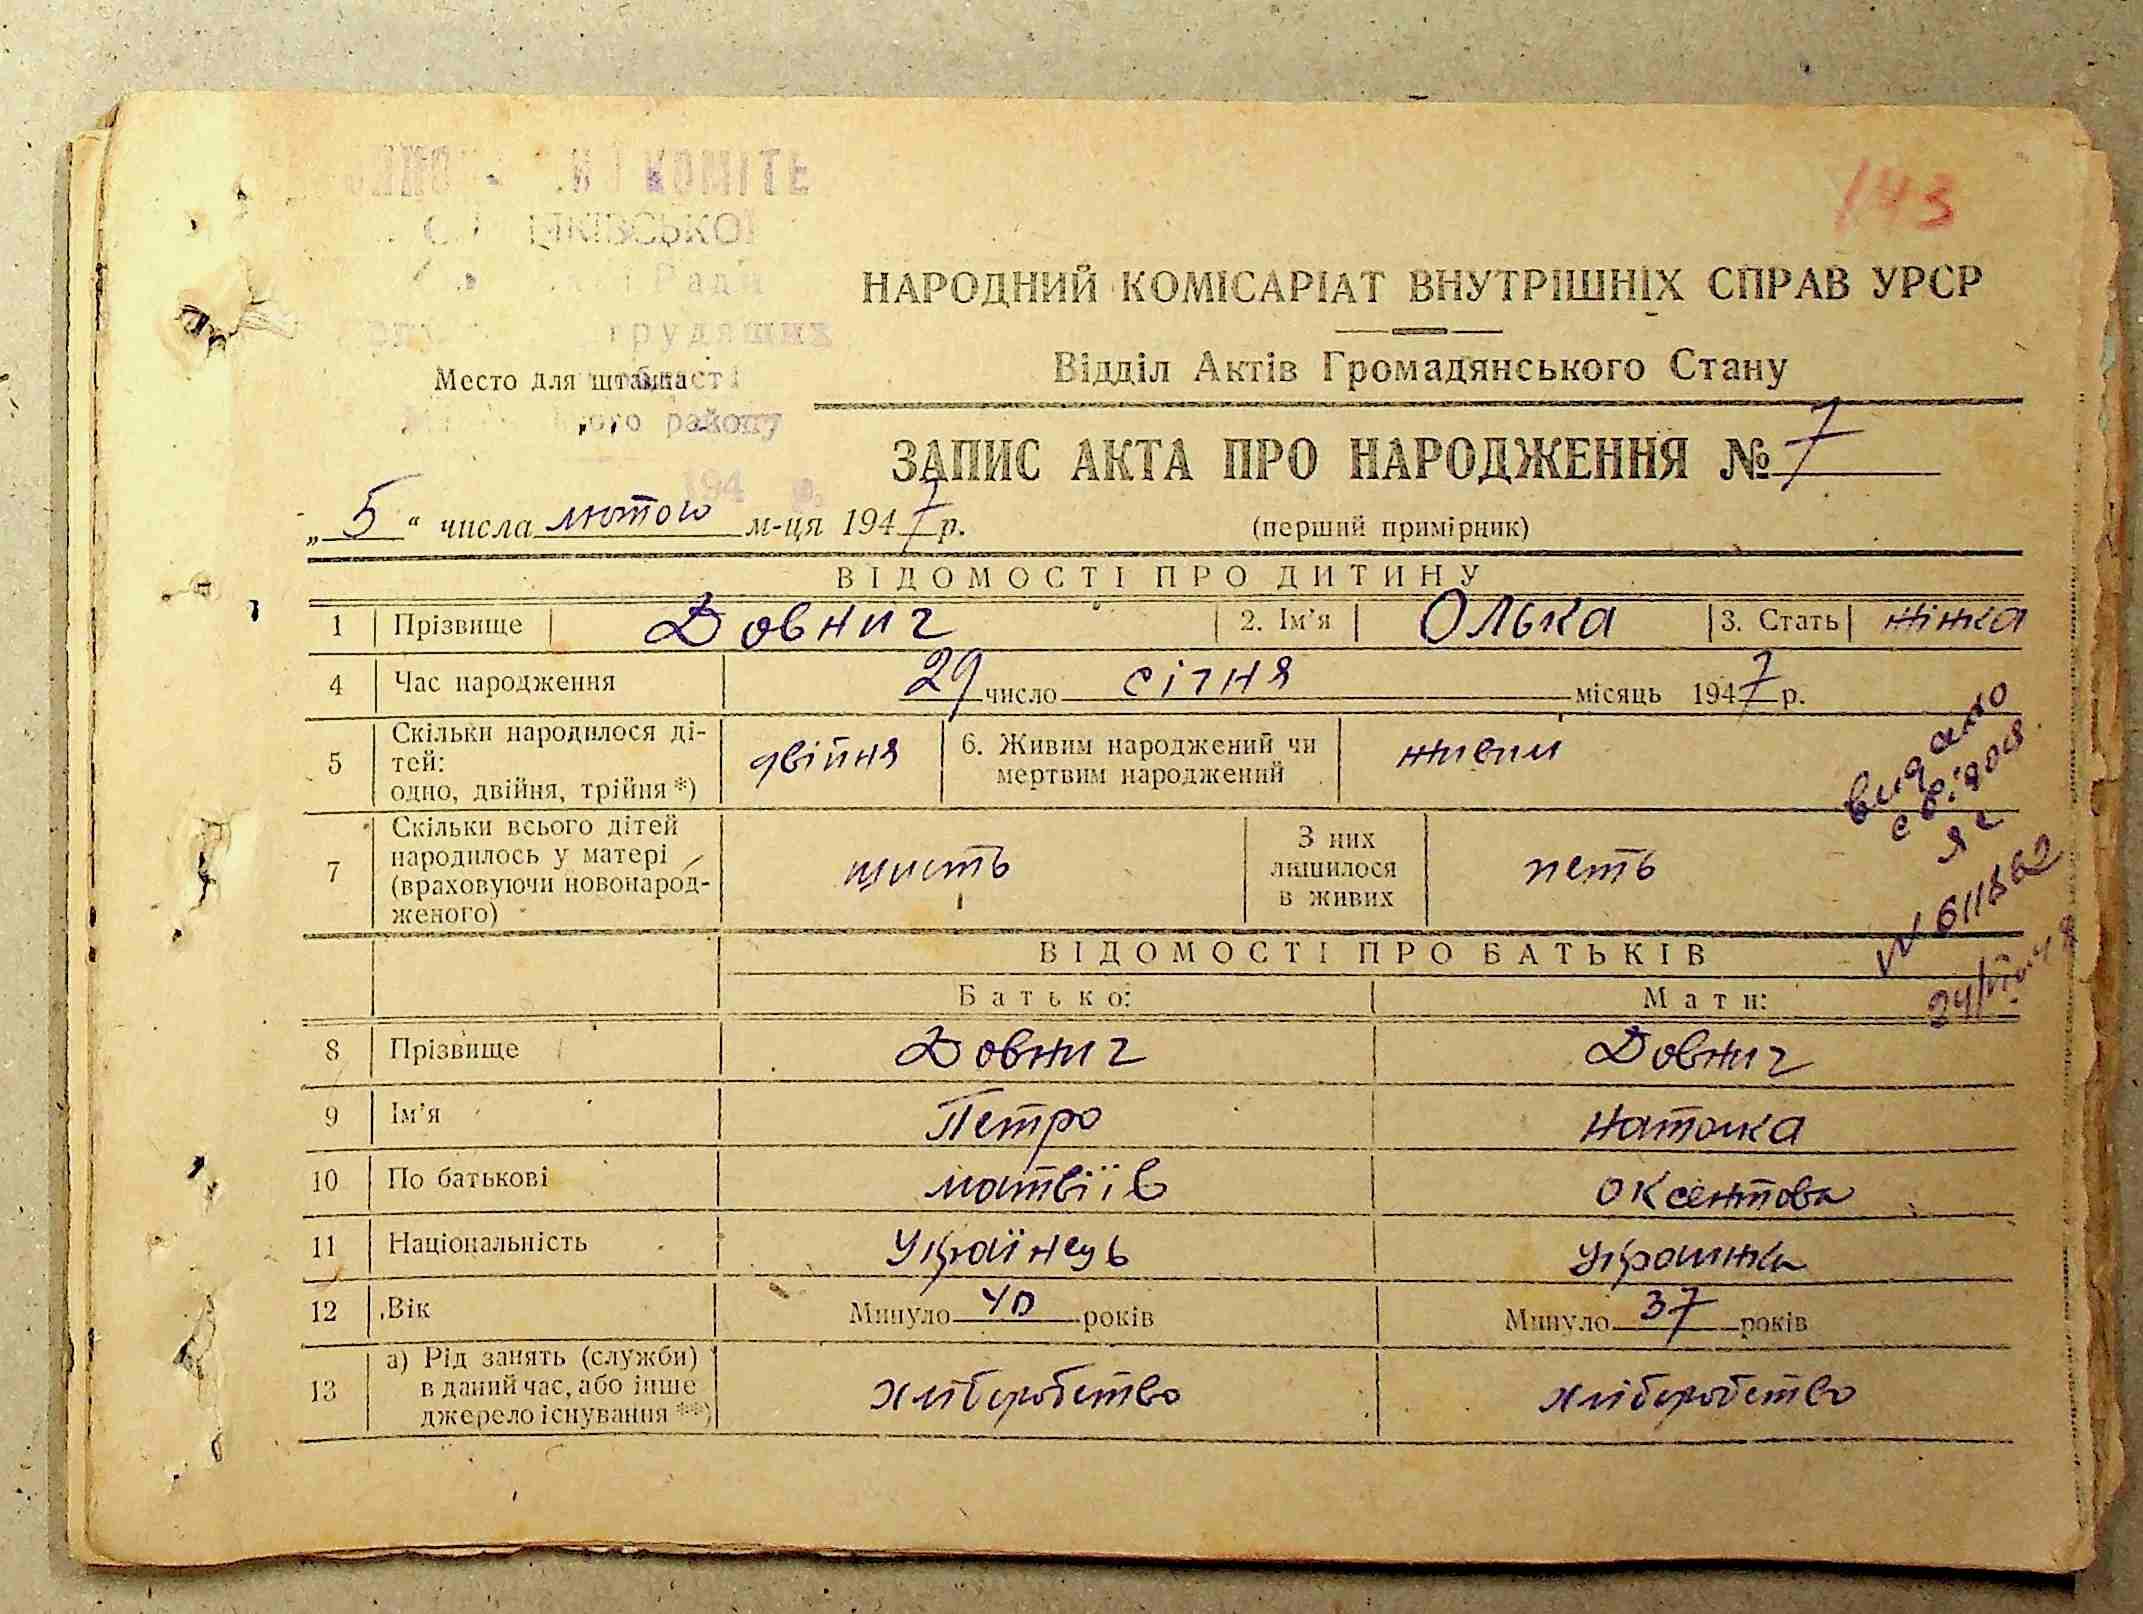 КОМІТЕ
Ради
трудящих
143
НАРОДНИЙ КОМІСАРІАТ ВНУТРІШНІХ СПРАВ УРСР
Відділ Актів Громадянського Стану
Место для штампа
району
ЗАПИС АКТА ПРО НАРОДЖЕННЯ № 7
194
„5“ числа лютого м-ця 1947 р. (перший примірник)
ВІДОМОСТІ ПРО ДИТИНУ
1 Прізвище Довнич 2. Ім'я Олька 3. Стать жінка
4 Час народження 29 число січня місяць 1947 р.
5 Скільки народилося ді-
тей:
одно, двійня, трійня *) двійня 6. Живим народжений чи
мертвим народжений живим
видано
свідоц
№ 611862
7 Скільки всього дітей
народилось у матері
(враховуючи новонарод-
женого) щисть З них
лишилося
в живих петь
ВІДОМОСТІ ПРО БАТЬКІВ
Батько: Мати:
8 Прізвище Довнич Довнич
9 Ім'я Петро Наталка
10 По батькові матвіїв оксентова
11 Національність Українець украинка
12 Вік Минуло 40 років Минуло 37 років
13 а) Рід занять (служби)
в даний час, або інше
джерело існування **) хліборобство хліборобство